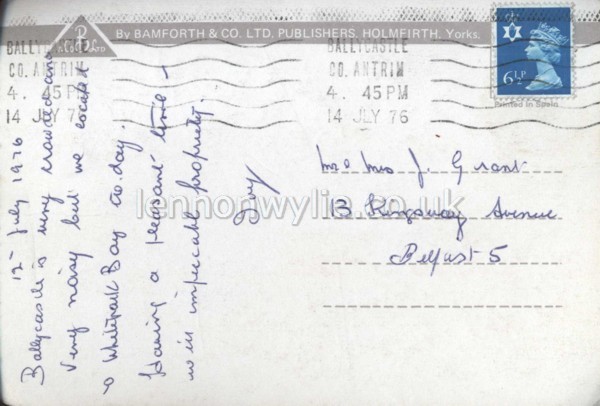 By BAMFORTH & CO. LTD. PUBLISHERS, HOLMFIRTH, Yorks.
BALLYCASTLE
CO. ANTRIM
4. 45 PM
14 JLY 76
BALLYCASTLE
CO. ANTRIM
4. 45 PM
14 JLY 76
6½P
Printed in Spain
12th July 1976
Ballycastle is very crowded and
very noisy but we escaped
to Whitepark Bay to-day.
Having a pleasant time –
in impeccable propriety.
Mr & Mrs J. Grant
13 Kingsway Avenue
Belfast 5
lennonwylie.co.uk